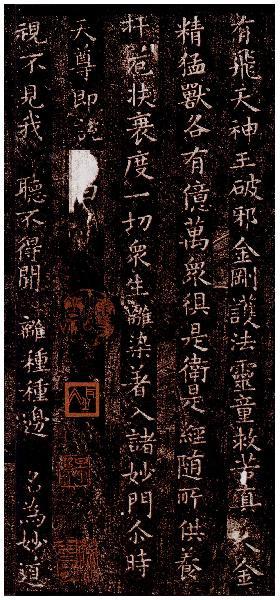 有飛天神王破邪金剛護法靈童救苦真人金
精猛獸各有億萬衆俱是衛是經随所供養
扞厄扶衰度一切衆生離染著入諸妙門尒時
天尊即說
視不見我 聽不得聞 離種種邊 名為妙道